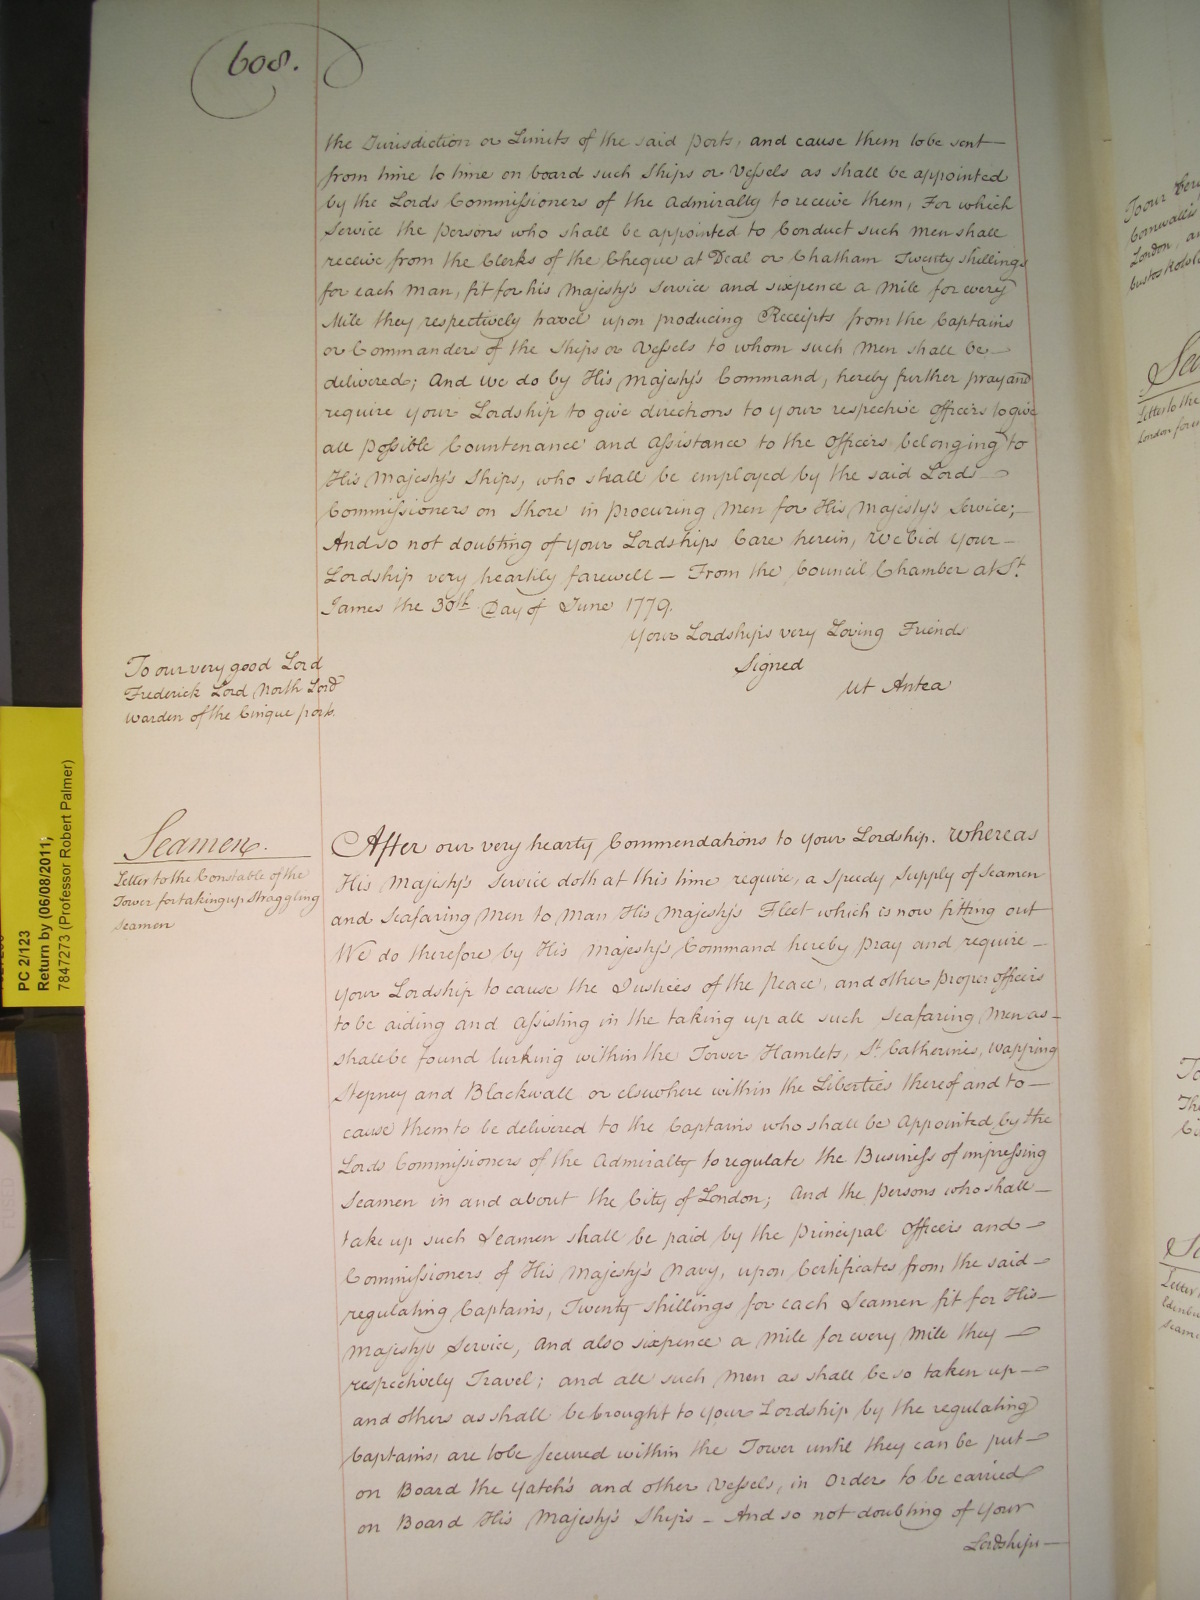 608.
the Jurisdiction or Limits of the said Ports, and cause them to be sent
from time to time on board such Ships or Vessels as shall be appointed
by the Lords Commissioners of the Admiralty to receive them, For which
Service the Persons who shall be appointed to Conduct such Men shall
receive from the Clerks of the Cheque at Deal or Chatham Twenty shillings
for each Man, fit for his Majesty's Service and sixpence a Mile for every
Mile they respectively travel upon producing Receipts from the Captains
or Commanders of the Ships or Vessels to whom such Men shall be
delivered; And we do by His Majesty's Command, hereby further pray and
require your Lordship to give directions to your respective Officers to give
all possible Countenance and Assistance to the Officers belonging to
His Majesty's Ships, who shall be employed by the said Lords
Commissioners on Shore in procuring Men for His Majesty's Service;
And so not doubting of your Lordships Care herein, We bid your
Lordship very heartily farewell – From the Council Chamber at St.
James the 30th Day of June 1779.
Your Lordships very Loving Friends
Signed
Ut Antea
To our very good Lord
Frederick Lord North Lord
Warden of the Cinque ports.
Seamen.
Letter to the Constable of the
Tower for taking up straggling
Seamen
After our very hearty Commendations to your Lordship. Whereas
His Majesty's Service doth at this time require, a Speedy Supply of Seamen
and Seafaring Men to Man His Majesty's Fleet which is now fitting out
We do therefore by His Majesty's Command hereby pray and require
your Lordship to cause the Justices of the Peace, and other proper officers
to be aiding and assisting in the taking up all such Seafaring Men as
shall be found lurking within the Tower Hamlets, St. Catherines, Wapping
Stepney and Blackwall or elsewhere within the Liberties thereof and to
cause them to be delivered to the Captains who shall be Appointed by the
Lords Commissioners of the Admiralty to regulate the Business of impressing
Seamen in and about the City of London; And the Persons who shall
take up such Seamen shall be paid by the Principal Officers and
Commissioners of His Majesty's Navy, upon Certificates from the said
regulating Captains, Twenty shillings for each Seamen fit for His
Majesty's Service, And also sixpence a Mile for every Mile they
respectively Travel; and all such Men as shall be so taken up
and others as shall be brought to your Lordship by the regulating
Captains, are to be secured within the Tower until they can be put
on Board the Yatch's and other Vessels, in Order to be carried
on Board His Majesty's Ships – And so not doubting of your
Lordships
PC 2/123
Return by (06/08/2011;
7847273 (Professor Robert Palmer)
To our very
Cornwallis
London, an
Custos Rotulo
Letter to the
London for